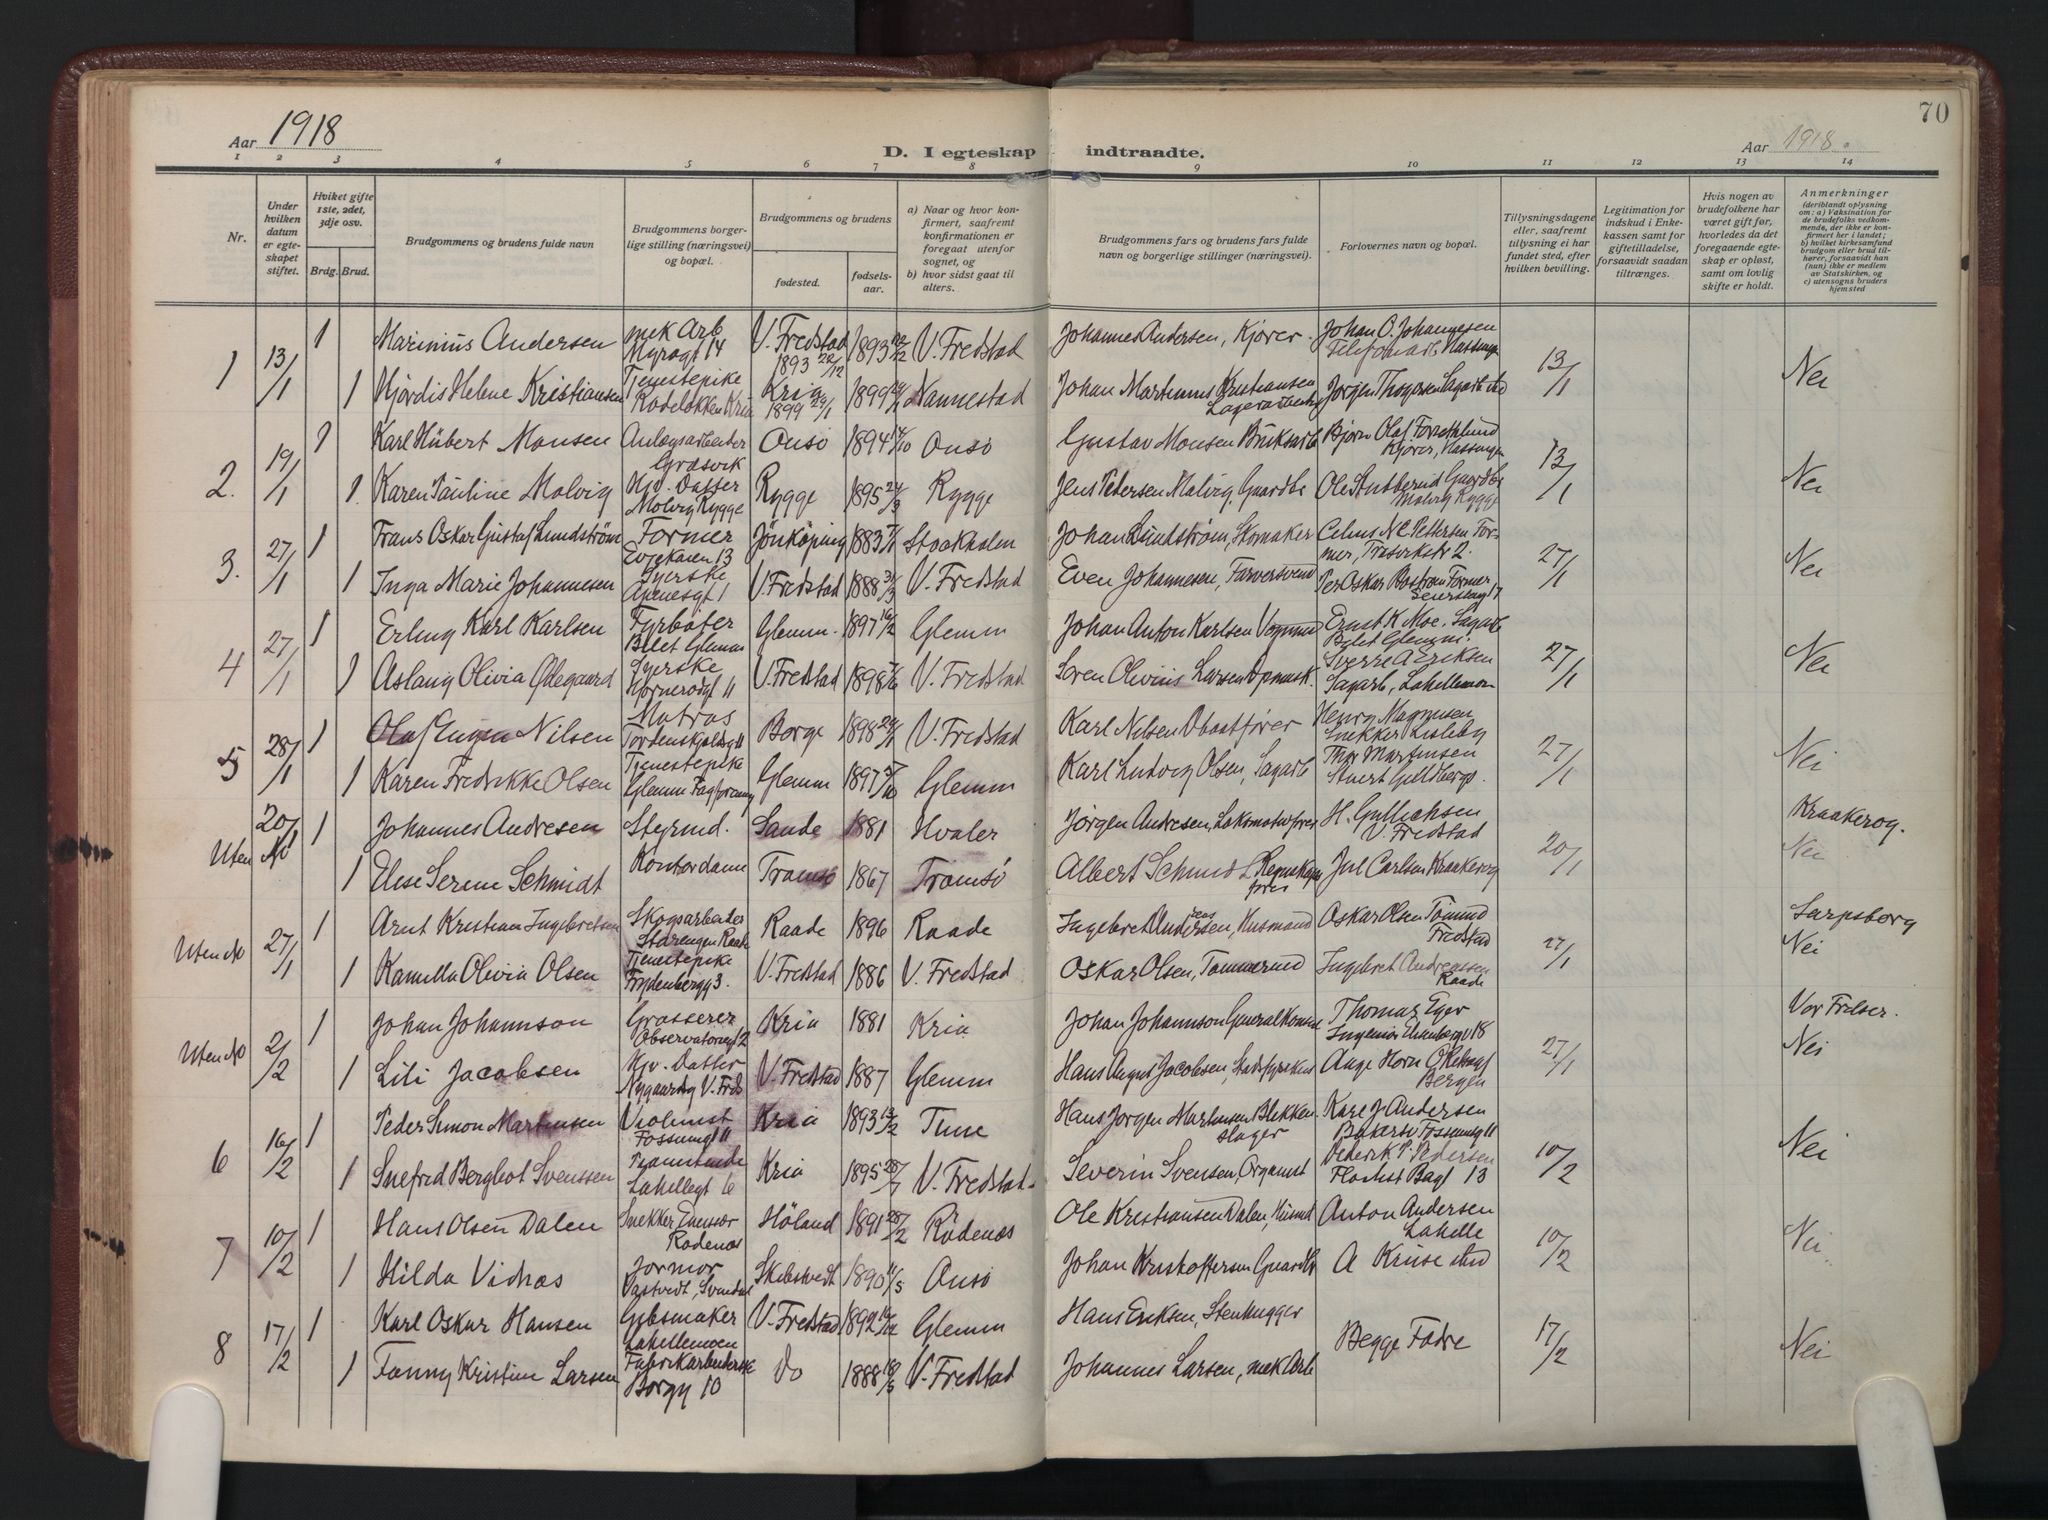 70
Aar 1918
D. I egteskap indtraadte.
Aar 1918.
1 2 3 4 5 6 7 8 9 10 11 12 13 14
Nr.
Under hvilken datum er egteskapet stiftet.
Hvilket gifte 1ste, 2det, 3dje osv.
Brdg. Brud.
Brudgommens og brudens fulde navn
Brudgommens borgerlige stilling (næringsvei) og bopæl.
Brudgommens og brudens
fødested.
fødselsaar.
a) Naar og hvor konfirmert, saafremt konfirmationen er foregaat utenfor sognet, og
b) hvor sidst gaat til alters.
Brudgommens fars og brudens fars fulde navn og borgerlige stillinger (næringsvei).
Forlovernes navn og bopæl.
Tillysningsdagene eller, saafremt tillysning ei har fundet sted, efter hvilken bevilling.
Legitimation for indskud i Enkekassen samt for giftetilladelse, forsaavidt saadan tiltrænges.
Hvis nogen av brudefolkene har været gift før, hvorledes da det foregaaende egteskap er opløst, samt om lovlig skifte er holdt.
Anmerkninger
(deriblandt oplysning om: a) Vaksination for de brudefolks vedkommende, der ikke er konfirmert her i landet; b) hvilket kirkesamfund brudgom eller brud tilhører, forsaavidt han (hun) ikke er medlem av Statskirken, og c) utensogns bruders hjemsted
1 13/1 1 Marinius Andersen mek Arb Myragt 14 V. Fredstad 1893 22/12 1893 22/12 V. Fredstad Johannes Andersen, Kjører. Johan O. Johannesen 13/1 Nei
1 Hjørdis Helene Kristiansen Tjenestepike Rodeløkken Kria Kria 1899 29/1 1899 29/1 Nannestad Johan Martinius Kristiansen Lagerarbeider Jørgen Sagarb sted
2. 19/1 1 Karl Hubert Monsen Anlægsarbeider Græsvik Onsø 1894 14/10 Onsø Gustav Monsen Bruksarb Bjørn Olaf Kjører, 13/1 Nei
1. Karen Pauline Molvig Hjv. Datter Molvig Rygge Rygge 1895 24/3 Rygge Jens Petersen Molvig, Gaardbr Ole Stubberud Gaardbr Molvig Rygge
3. 27/1 1 Frans Oskar Gustaf Lundström Former Evjekaien 13 Jönköping 1883 7/1 Stockholm Johan Lundström, Skomaker N.C. Pettersen Former, 2. 27/1 Nei
1 Inga Marie Johannesen Syerske Apenesgt 1 V. Fredstad 1888 31/3 V. Fredstad Even Johannesen, Farversvend Per Oskar Bostrøm Former 17
4 27/1 1 Erling Karl Karlsen Fyrbøter Glemm Glemm. 1897 16/2 Glemm Johan Anton Karlsen Vognmd Ernst K Moe, Sagarb Glemm. 27/1 Nei
1 Aslaug Olivia Ødegaard Syerske 11 V. Fredstad 1898 7/6 V. Fredstad Søren Olivius Larsen Opmudk. Sverre A Eriksen Sagarb, Lahellemoen
5 28/1 1 Olaf Eugen Nilsen Matros Tordenskjoldsg 11 Borge 1898 29/1 V. Fredstad Karl Nilsen Baatfører Henry Magnusen Snekker Lisleby 27/1 Nei
1 Karen Fredrikke Olsen Tjenestepike Glemm 1897 5/10 Glemm Karl Ludvig Olsen, Sagarb Thor Martinsen Stuert
Uten No 20/1 1 Johannes Andresen Styrmd. Sande 1881 Hvaler Jørgen Andresen, Lokomotivfører H. Gullichsen V. Fredstad 20/1 Kraakerøy. Nei
1 Else Serine Schmidt Kontordame Tromsø 1867 Tromsø Albert Schmidt Regnskapsfører Jul Carlsen Kraakerøy
Uten No 27/1 1 Arnt Kristian Ingebretsen Skogsarbeider Raade Raade 1896 Raade Ingebret Andersen, Husmand Oskar Olsen Tømmd Fredstad 27/1 Sarpsborg Nei
1 Kamilla Olivia Olsen Tjenestepike Frydenbergg 3. V. Fredstad 1886 V. Fredstad Oskar Olsen, Tømmermd Ingebret Andreassen Raade
Uten No 2/2 1 Johan Johannson Grosserer Observatoriegt 12 Kria 1881 Kria Johan Johannson Generalkonsul Thomas Eger Ingeniør 18 27/1 Vor Frelser. Nei
1 Lili Jacobsen Hjv. Datter Nygaardsg V. Freds V. Fredstad 1887 Glemm Hans August Jacobsen, Aage Horn Bergen
6 16/2 1 Peder Simon Martinsen Violinist Fossumgt 11 Kria 1893 13/2 Tune Hans Jørgen Martinsen Blikkenslager Kare J. Andersen Bakersv Fossumsg 11 10/2 Nei
1 Snefrid Bergliot Svenssen Pianistinde Lahellegt 6 Kria 1895 28/7 V. Fredstad. Severin Svensen, Organist Dederik P. Pedersen Flor Bagt 13
7 10/2 1 Hans Olsen Dalen Snekker Rødenes Høland 1891 28/2 Rødenæs Ole Kristiansen Dalen, Husmd Anton Andersen Lahelle 10/2 Nei.
1 Hilda Vidnæs Jormor Svindal Skibstvedt 1890 11/5 Onsø Johan Kristoffersen Gaardbr A Kruse sted
8 17/2 1 Karl Oskar Hansen Gibsmaker Lahellemoen V. Fredstad 1892 16/12 Glemm Hans Eriksen, Stenhugger Begge Fædre 17/2 Nei
1 Fanny Kristine Larsen Fabrikarbeiderske Borgg 10 do 1888 18/5 V. Fredstad Johannes Larsen, mek Arb